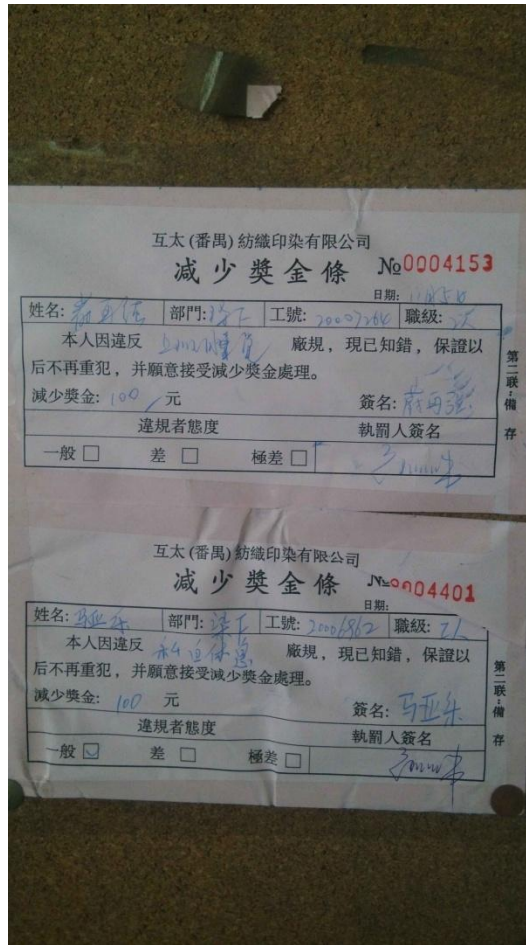 互太(番禺)紡織印染有限公司
減少獎金條 №0004153
日期:
姓名: 部門:染下 工號:20007264 職級:
本人因違反 廠規,現已知錯,保證以
后不再重犯,并願意接受減少獎金處理。
減少獎金:100 元 簽名:
違規者態度 執罰人簽名
一般 □ 差 □ 極差 □
第二联:備存
互太(番禺)紡織印染有限公司
減少獎金條 №0004401
日期:
姓名:马亚乐 部門:染下 工號:20006862 職級:
本人因違反 廠規,現已知錯,保證以
后不再重犯,并願意接受減少獎金處理。
減少獎金:100 元 簽名:马亚乐
違規者態度 執罰人簽名
一般 ☑ 差 □ 極差 □
第二联:備存